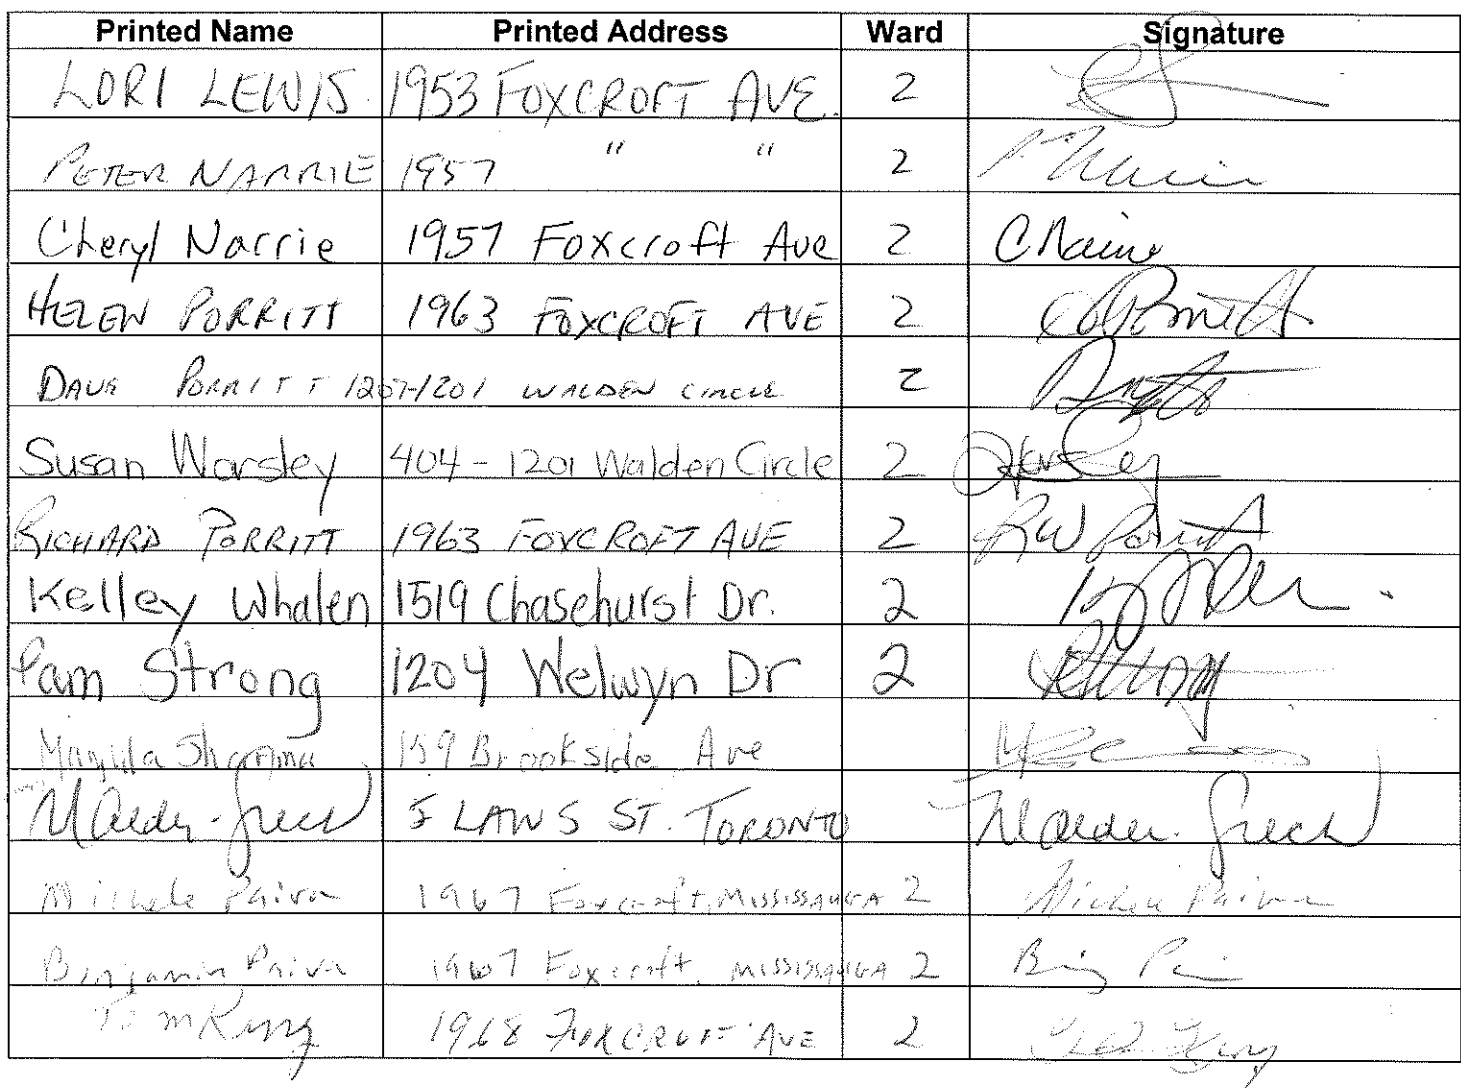 Printed Name Printed Address Ward Signature
LORI LEWIS 1953 FOXCROFT AVE. 2
PETER NARRIE 1957 " " 2
Cheryl Narrie 1957 Foxcroft Ave 2 C Narrie
HELEN PORRITT 1963 FOXCROFT AVE 2
DAVE PORRITT 1207-1201 WALDEN CIRCLE 2
Susan Worsley 404 - 1201 Walden Circle 2
RICHARD PORRITT 1963 FOXCROFT AVE 2 RW Porritt
Kelley Whalen 1519 Chasehurst Dr. 2
Pam Strong 1204 Welwyn Dr 2
Sharma 159 Brookside Ave
LAWS ST. TORONTO
Michele Paiva 1967 Foxcroft, MISSISSAUGA 2 Michele Paiva
Benjamin Paiva 1967 Foxcroft, MISSISSAUGA 2
Tom King 1968 FOXCROFT AVE 2